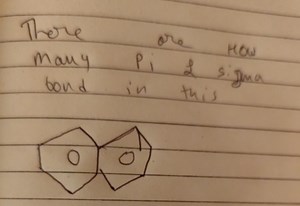 There are How
many Pi & sigma
bond in this